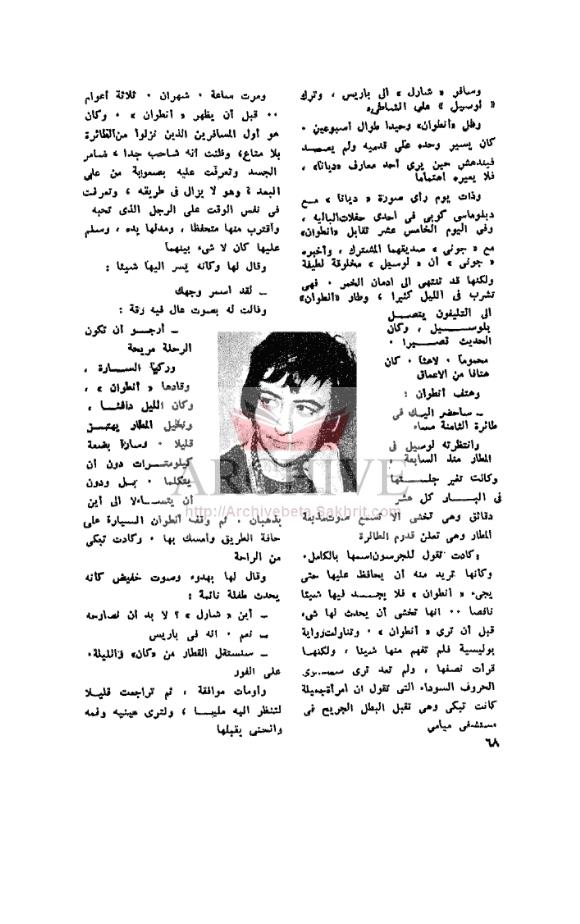 وسافر « شارل » الى باريس ، وترك
« لوسيل » على الشاطىء
وظل «أنطوان» وحيدا طوال أسبوعين ·
كان يسير وحده على قدميه ولم يعد
فيندهش حين يرى أحد معارف «ديانا» ،
فلا يعيره اهتماما
وذات يوم رأى صورة « ديانا » مع
دبلوماسى كوبى فى احدى حفلات الباليه ،
وفى اليوم الخامس عشر تقابل «أنطوان»
مع « جونى » صديقهما المشترك ، وأخبره
« جونى » أن « لوسيل » مخلوقة لطيفة
ولكنها قد تنتهى الى ادمان الخمر · فهى
تشرب فى الليل كثيرا ، وطار «أنطوان»
الى التليفون يتصل
بلوسيل ، وكان
الحديث قصيرا ·
محموما · لاهثا · كان
هتافا من الاعماق
وهتف أنطوان :
ـ سأحضر اليك فى
طائرة الثامنة مساء
وانتظرته لوسيل فى
المطار منذ السابعة
وكانت تغير جلستها
فى البار كل عشر
دقائق وهى تخشى ألا تسمع صوت مذيعة
المطار وهى تعلن قدوم الطائرة
وكادت تقول للجرسون اسمها بالكامل·
وكأنها تريد منه أن يحافظ عليها حتى
يجىء « أنطوان » فلا يجد فيها شيئا
ناقصا ·· انها تخشى أن يحدث لها شىء
قبل أن ترى « أنطوان » · وتناولت رواية
بوليسية فلم تفهم منها شيئا ، ولكنها
قرأت نصفها ، ولم تعد ترى سوى
الحروف السوداء التى تقول ان امرأة جميلة
كانت تبكى وهى تقبل البطل الجريح فى
مستشفى ميامى
٦٨
ومرت ساعة · شهران · ثلاثة أعوام
·· قبل أن يظهر « أنطوان » · وكان
هو أول المسافرين الذين نزلوا من الطائرة
بلا متاع، وظنت أنه شاحب جدا ، ضامر
الجسد وتعرفت عليه بصعوبة من على
البعد ، وهو لا يزال فى طريقه ، وتعرفت
فى نفس الوقت على الرجل الذى تحبه
واقترب منها متحفظا ، ومد لها يده ، وسلم
عليها كأن لا شىء بينهما
وقال لها وكأنه يسر اليها شيئا :
ـ لقد اسمر وجهك
وقالت له بصوت عال فيه رقة :
ـ أرجو أن تكون
الرحلة مريحة
وركبا السيارة ،
وقادها « أنطوان » ،
وكان الليل دافئا ،
ونخيل المطار يهتز
قليلا · وسارا بضعة
كيلومترات دون أن
يتكلما · بل ودون
أن يتساءلا الى أين
يذهبان · ثم وقف أنطوان السيارة على
حافة الطريق وأمسك بها · وكادت تبكى
من الراحة
وقال لها بهدوء وصوت خفيض كأنه
يحدث طفلة نائمة :
ـ أين « شارل » ؟ لا بد أن نصارحه
ـ نعم · انه فى باريس
ـ سنستقل القطار من «كان» والليلة·
على الفور
وأومأت موافقة ، ثم تراجعت قليلا
لتنظر اليه مليا ، ولترى عينيه وفمه
وانحنى يقبلها
ARCHIVE
http://Archivebeta.Sakhrit.com